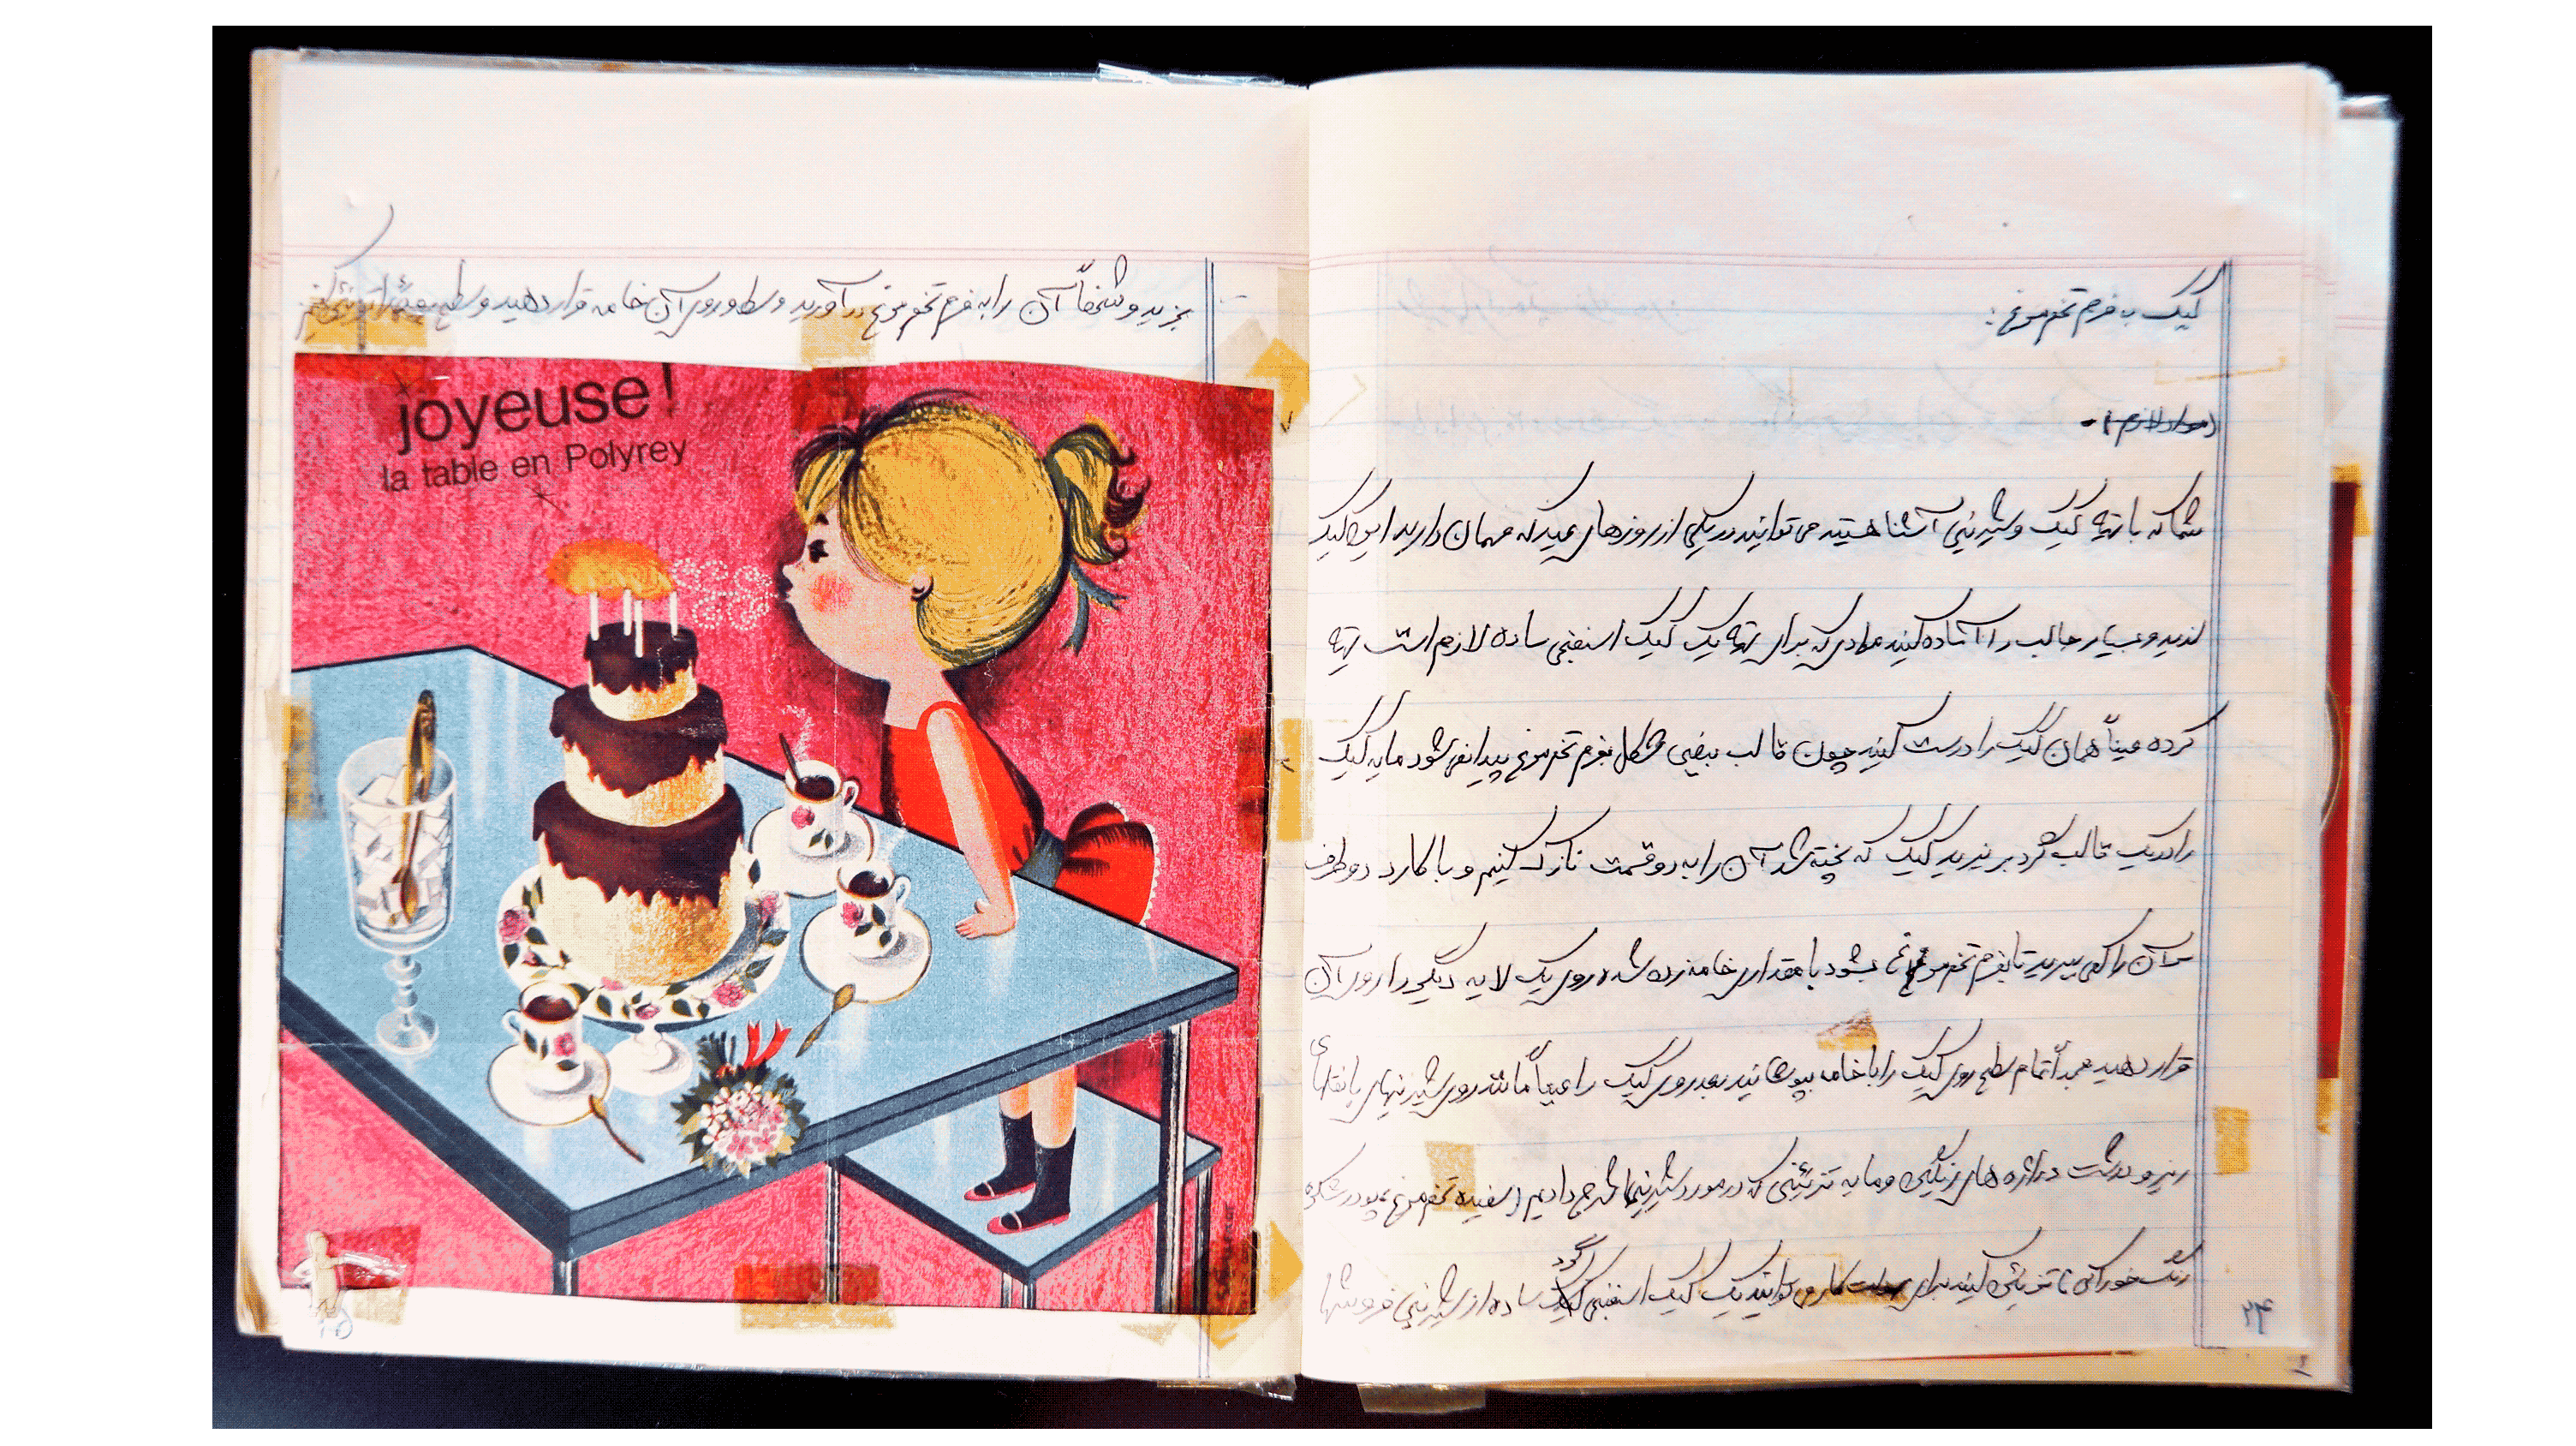 کیک به فرم تخم مرغ :
(مواد لازم) -
شما که با تهیه کیک و شیرینی آشنا هستید می توانید در یکی از روزهای عید که مهمان دارید این کیک
لذیذ و بسیار جالب را آماده کنید موادی که برای تهیه یک کیک اسفنجی ساده لازم است تهیه
کرده عیناً همان کیک را درست کنید چون قالب بیضی شکل بفرم تخم مرغ پیدا نمی شود مایه کیک
را در یک قالب گرد بریزید کیک که پخته شد آن را به دو قسمت نازک کنیم و با کارد دو طرف
آن را کمی ببرید تا بفرم تخم مرغ بشود با مقداری خامه زده شده روی یک لایه دیگر را روی آن
قرار دهید بعداً تمام سطح روی کیک را با خامه بپوشانید بعد روی کیک را عیناً مانند روی شیرینیهای با نقلهای
ریز و درشت دراژه های رنگی و مایه تزئینی که در مورد شیرینیها شرح دادیم (سفیده تخم مرغ، پودر شکر و
رنگ خوراکی) تزئین کنید برای سهولت کار می توانید یک کیک اسفنجی گرد ساده از شیرینی فروشیها
۲۴
بخرید و شخصاً آن را به فرم تخم مرغ درآورید وسط و روی آن خامه قرار دهید و سطح را تزئین کنید
joyeuse!
la table en Polyrey